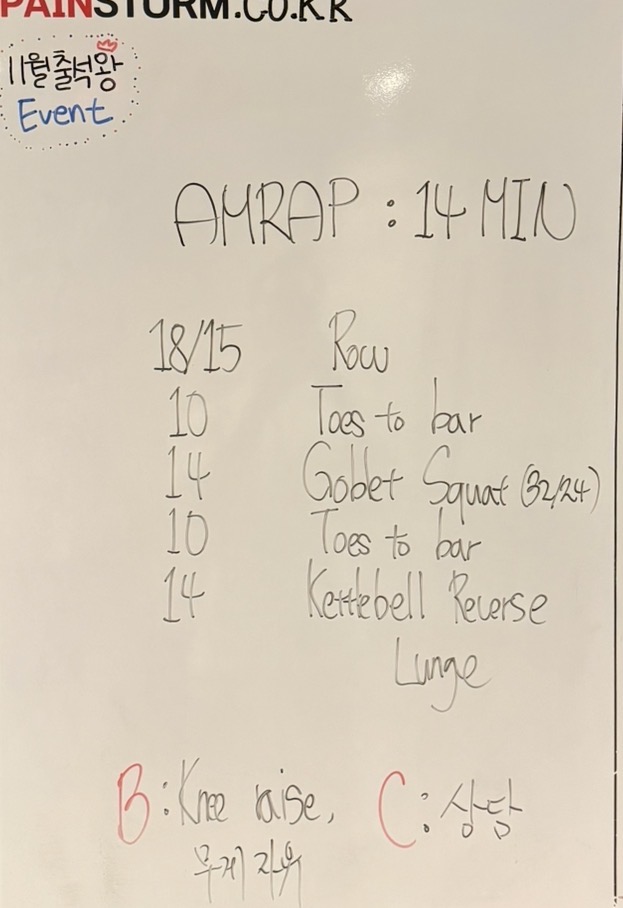 PAINSTORM.CO.KR
11월 출석왕
Event
AMRAP : 14 MIN
18/15 Row
10 Toes to bar
14 Goblet Squat (32/24)
10 Toes to bar
14 Kettlebell Reverse
Lunge
B : Knee raise, C : 상담
무게 자유